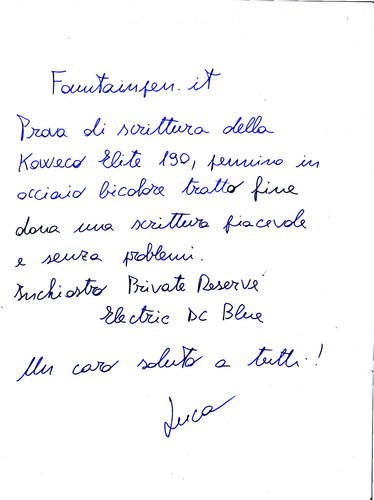 Fountainpen.it
Prova di scrittura della
Kaweco Elite 190, pennino in
acciaio bicolore tratto fine
dona una scrittura piacevole
e senza problemi.
Inchiostro Private Reserve
Electric DC Blue
Un caro saluto a tutti!
Luca